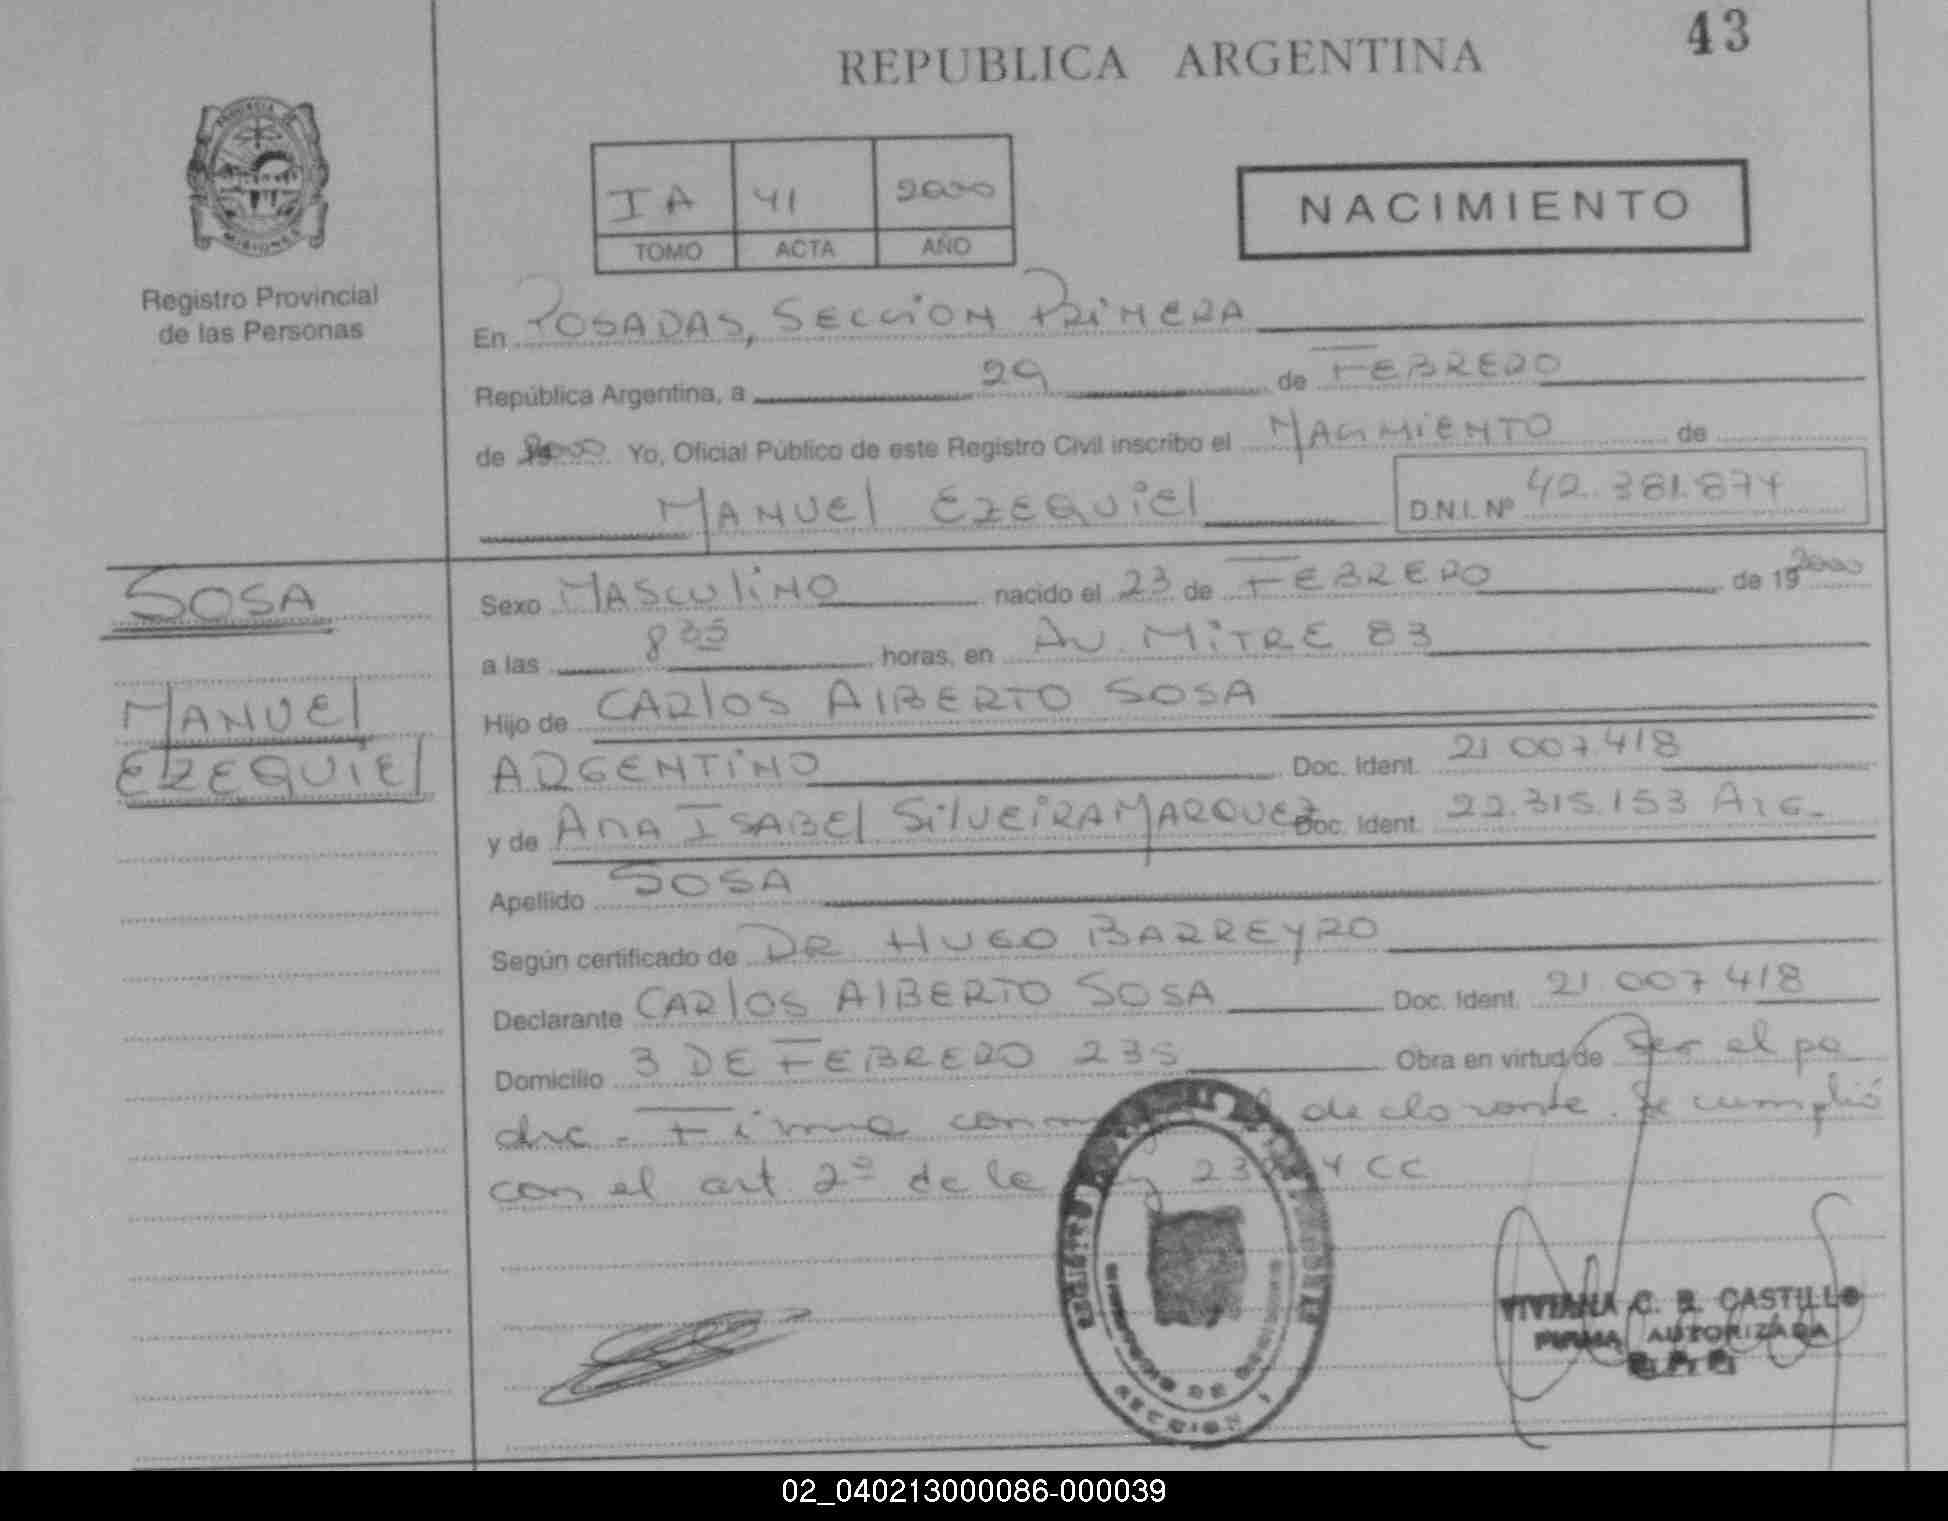 43
REPUBLICA ARGENTINA
PROVINCIA DE
MISIONES
Registro Provincial
de las Personas
I A 41 2000
TOMO ACTA AÑO
NACIMIENTO
En POSADAS, SECCION PRIMERA
República Argentina, a 29 de FEBRERO
de 2000 Yo, Oficial Público de este Registro Civil inscribo el NACIMIENTO de
MANUEL EZEQUIEL D.N.I. Nº 42.381.874
SOSA
MANUEL
EZEQUIEL
Sexo MASCULINO nacido el 23 de FEBRERO de 19 2000
a las 8 35 horas, en AV. MITRE 83
Hijo de CARLOS ALBERTO SOSA
ARGENTINO Doc. Ident. 21 007 418
y de ANA ISABEL SILVEIRA MARQUEZ Doc. Ident. 22.315.153 ARG.
Apellido SOSA
Según certificado de DR HUGO BARREYRO
Declarante CARLOS ALBERTO SOSA Doc. Ident. 21 007 418
Domicilio 3 DE FEBRERO 235 Obra en virtud de ser el pa
dre - Firma declarante. Se cumplió
con el art. 2º de la CC
SECCION 1
VIVIANA C. B. CASTILLO
FIRMA AUTORIZADA
02_040213000086-000039